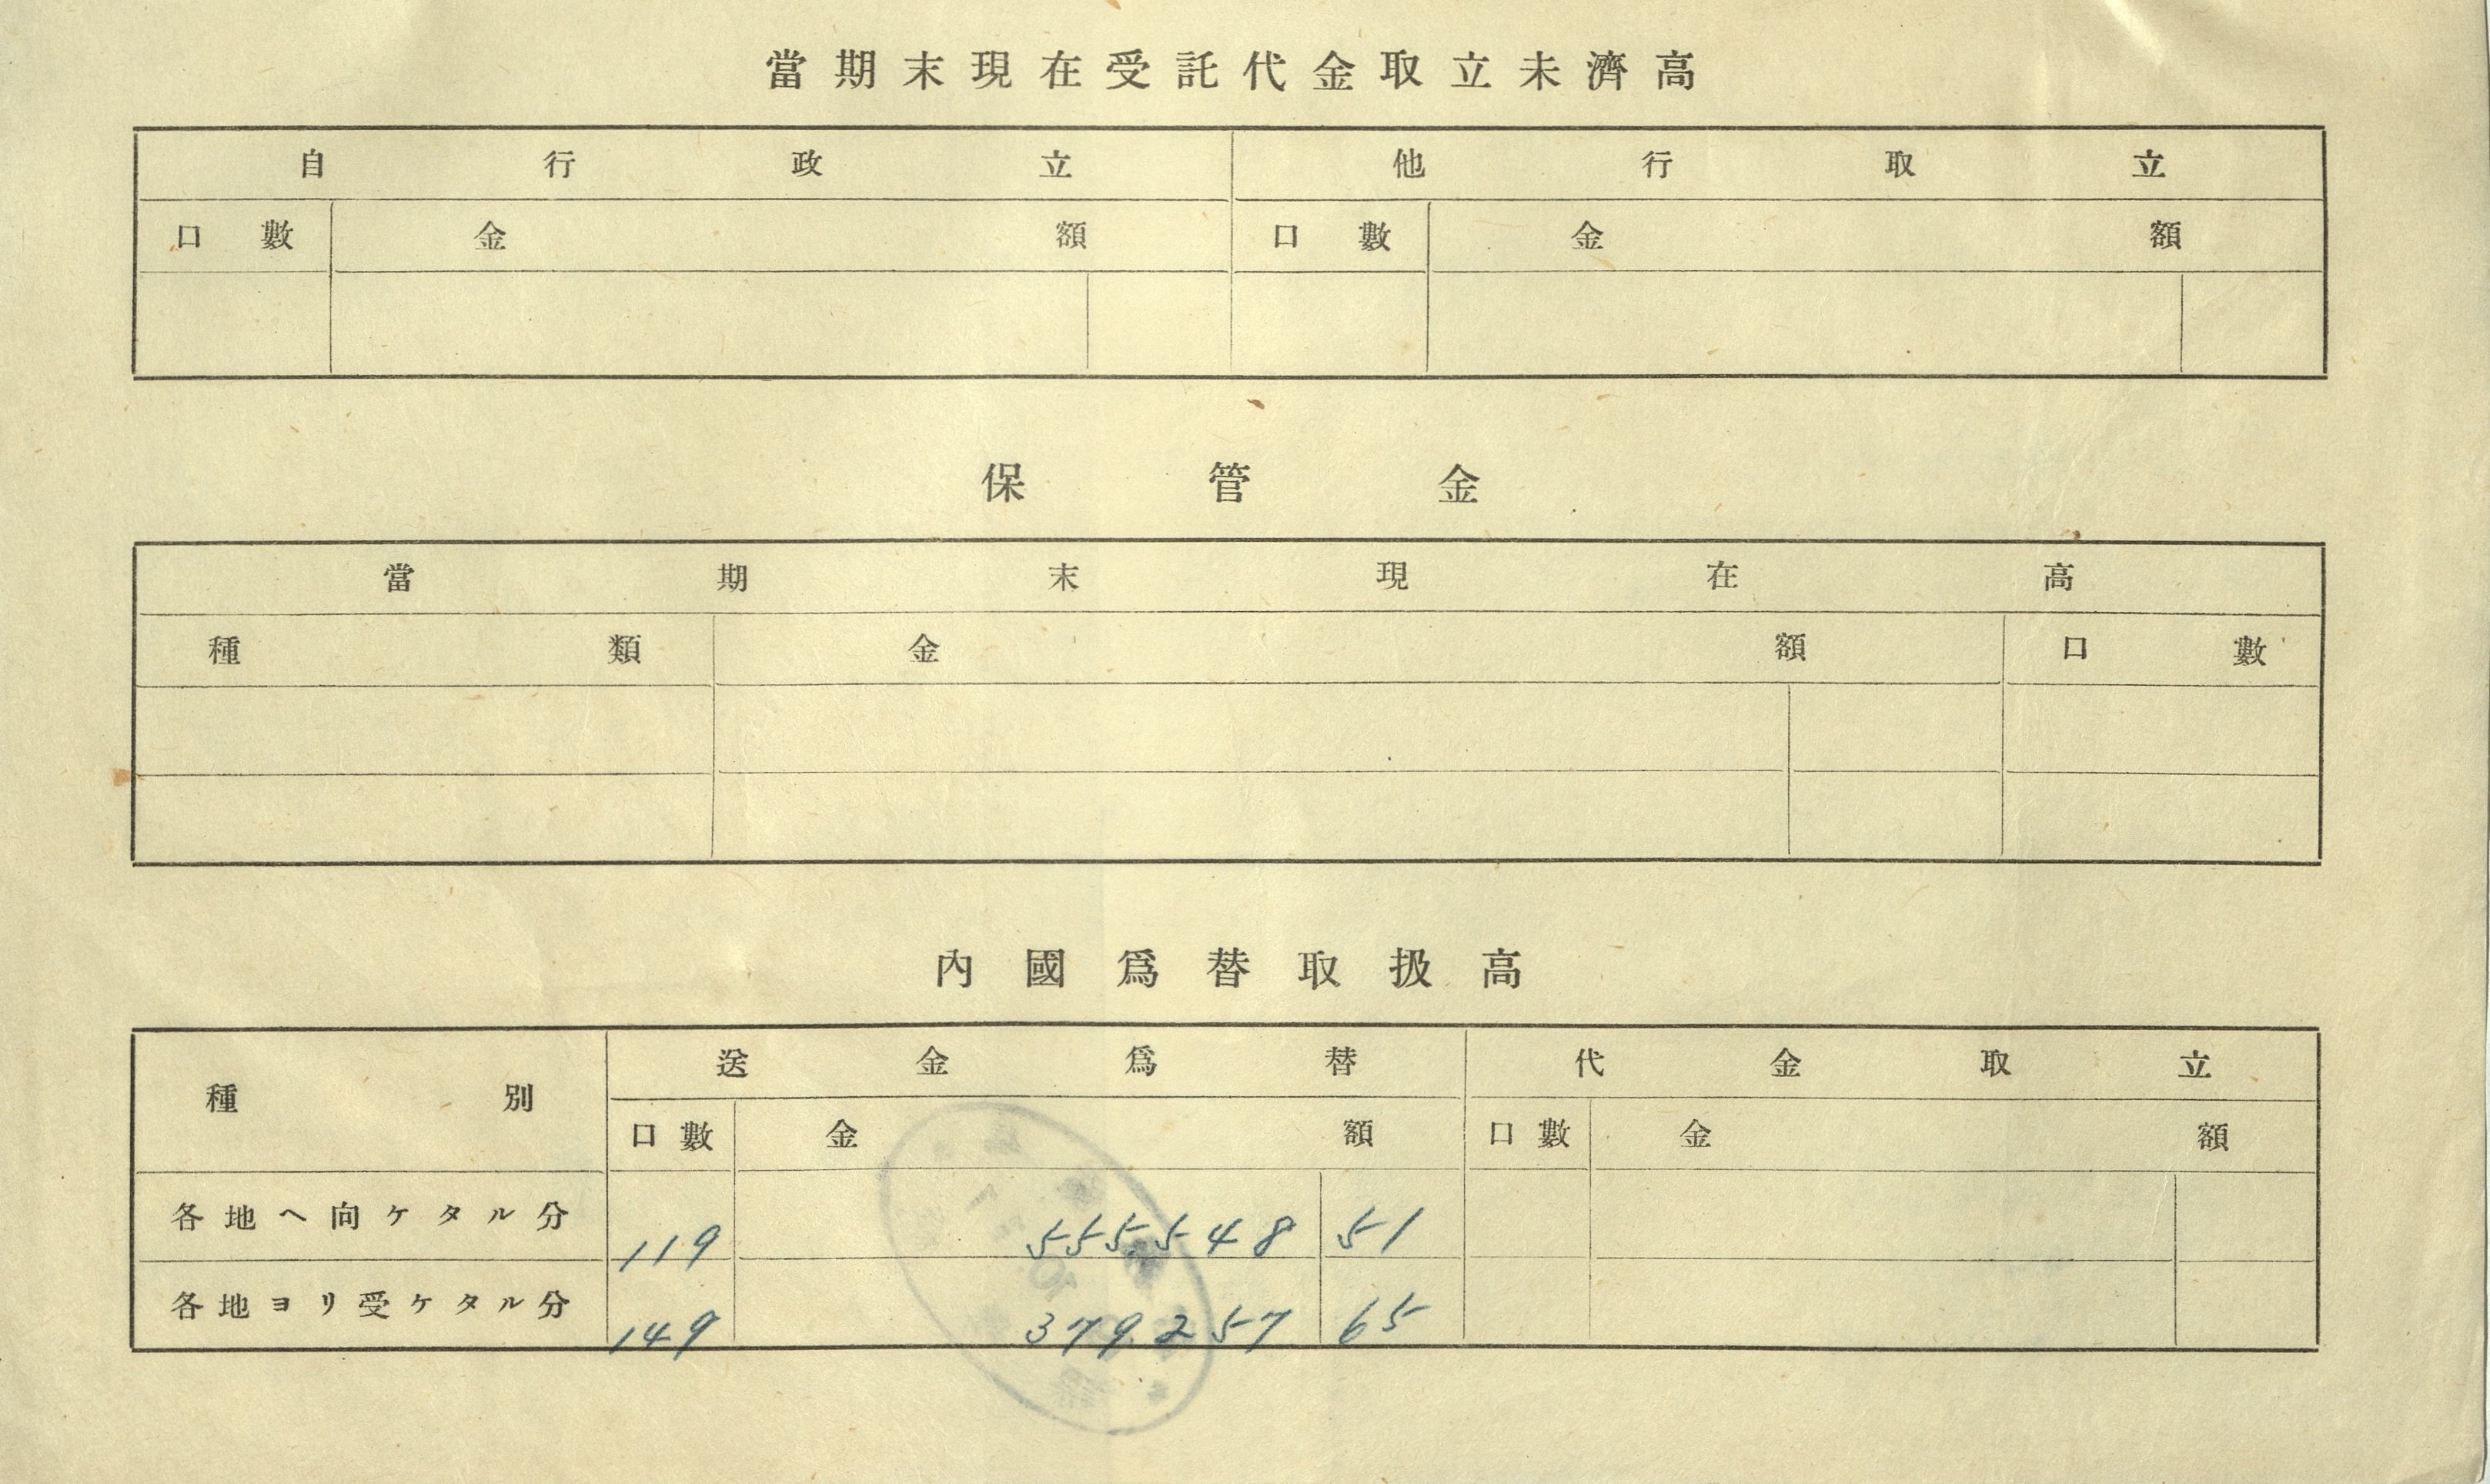 當期末現在受託代金取立未濟高
自行政立 他行取立
口數 金額 口數 金額
保管金
當期末現在高
種類 金額 口數
內國爲替取扱高
種別 送金爲替 代金取立
口數 金額 口數 金額
各地ヘ向ケタル分 119 555,548 51
各地ヨリ受ケタル分 149 379,257 65